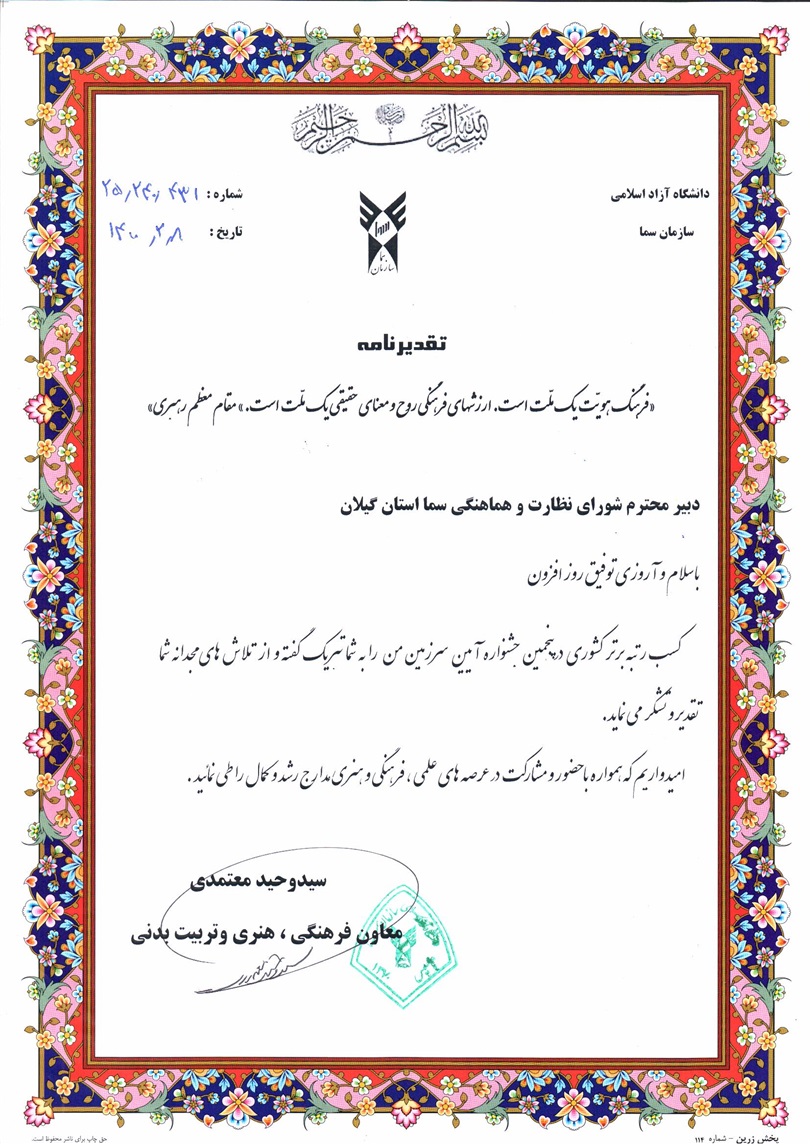 بسم الله الرحمن الرحیم
دانشگاه آزاد اسلامی
سازمان سما
سما
سازمان سما
شماره :
تاریخ :
تقدیرنامه
«فرهنگ هویّت یک ملّت است. ارزشهای فرهنگی روح و معنای حقیقی یک ملّت است.» مقام معظم رهبری»
دبیر محترم شورای نظارت و هماهنگی سما استان گیلان
باسلام و آروزی توفیق روز افزون
کسب رتبه برتر کشوری در پنجمین جشنواره آیین سرزمین من را به شما تبریک گفته و از تلاش های مجدانه شما
تقدیر و تشکر می نماید.
امیدواریم که همواره با حضور و مشارکت در عرصه های علمی ، فرهنگی و هنری مدارج رشد و کمال را طی نمائید .
سیدوحید معتمدی
معاون فرهنگی ، هنری وتربیت بدنی
پخش زرین - شماره ۱۱۴
حق چاپ برای ناشر محفوظ است.